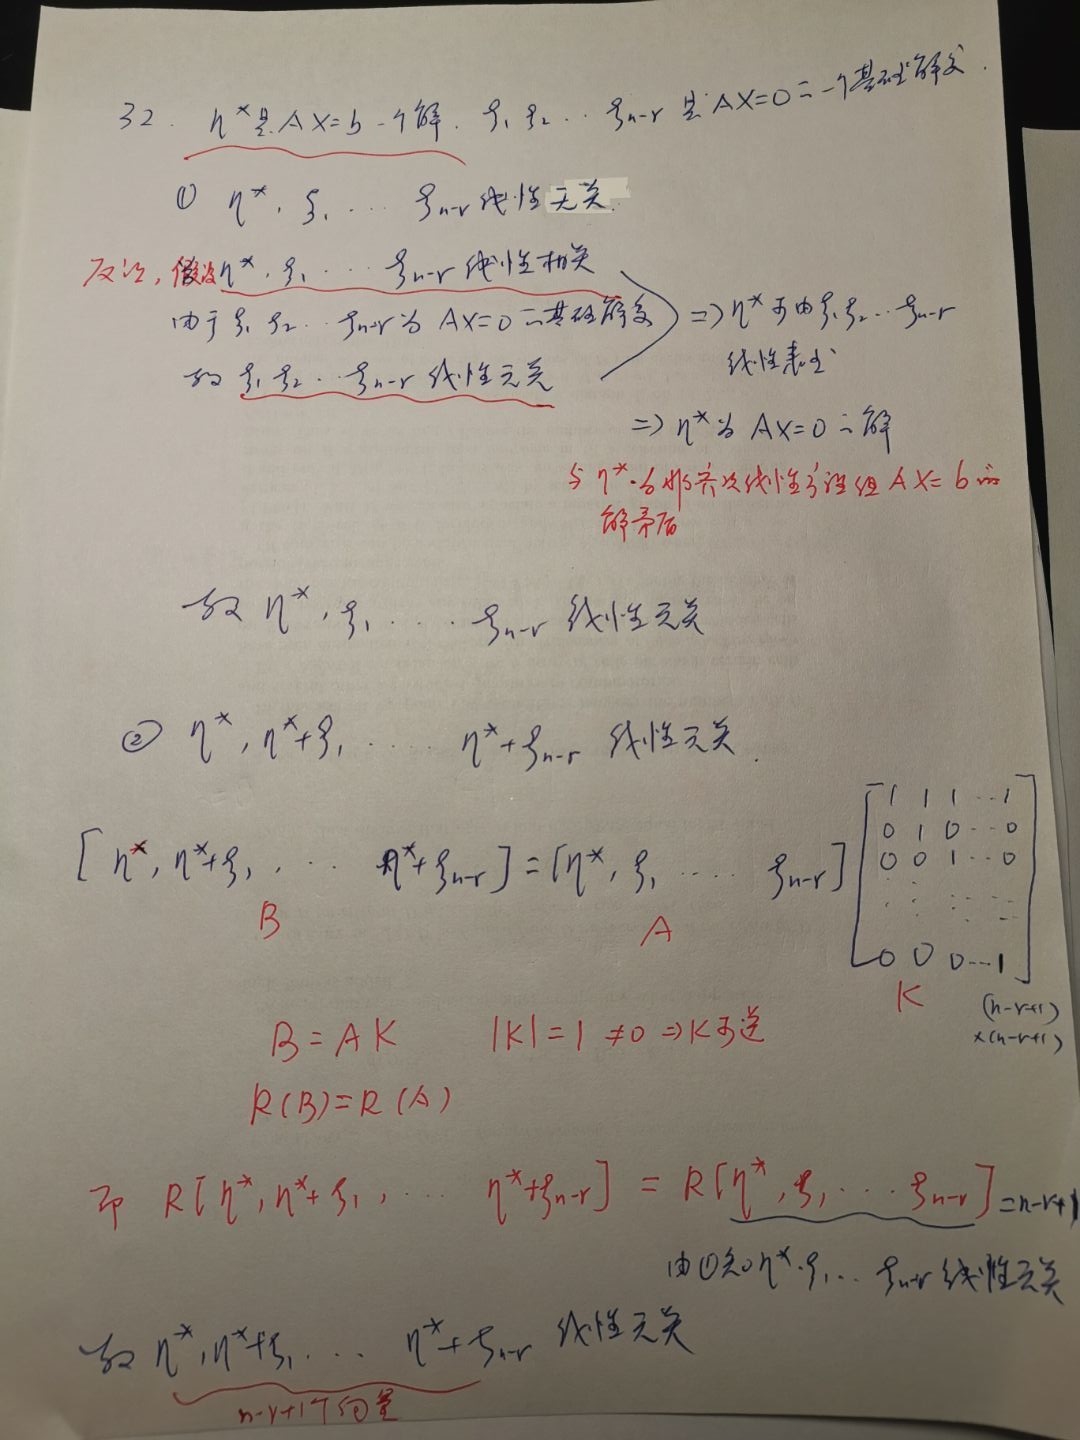 32. η*是AX=b一个解. ξ₁ ξ₂ ... ξn-r是AX=0的一个基础解系.
① η*, ξ₁ .... ξn-r线性无关.
反证, 假设η*, ξ₁ .... ξn-r线性相关
由于ξ₁ ξ₂ ... ξn-r为AX=0的基础解系
故 ξ₁ ξ₂ ... ξn-r 线性无关
⇒ η*可由ξ₁ ξ₂ ... ξn-r
线性表出
⇒ η*为AX=0的解
与η*为非齐次线性方程组AX=b的
解矛盾
故 η*, ξ₁ .... ξn-r 线性无关
② η*, η*+ξ₁ .... η*+ξn-r 线性无关.
[η*, η*+ξ₁, ... η*+ξn-r] = [η*, ξ₁ .... ξn-r]
1 1 1 ... 1
0 1 0 ... 0
0 0 1 ... 0
0 0 0 ... 1
B A K (n-r+1)
×(n-r+1)
B = AK |K| = 1 ≠0 ⇒K可逆
R(B)=R(A)
即 R[η*, η*+ξ₁, ... η*+ξn-r] = R[η*, ξ₁ ... ξn-r] =n-r+1
由①知η*, ξ₁ ... ξn-r线性无关
故 η*, η*+ξ₁ .... η*+ξn-r 线性无关
n-r+1个向量